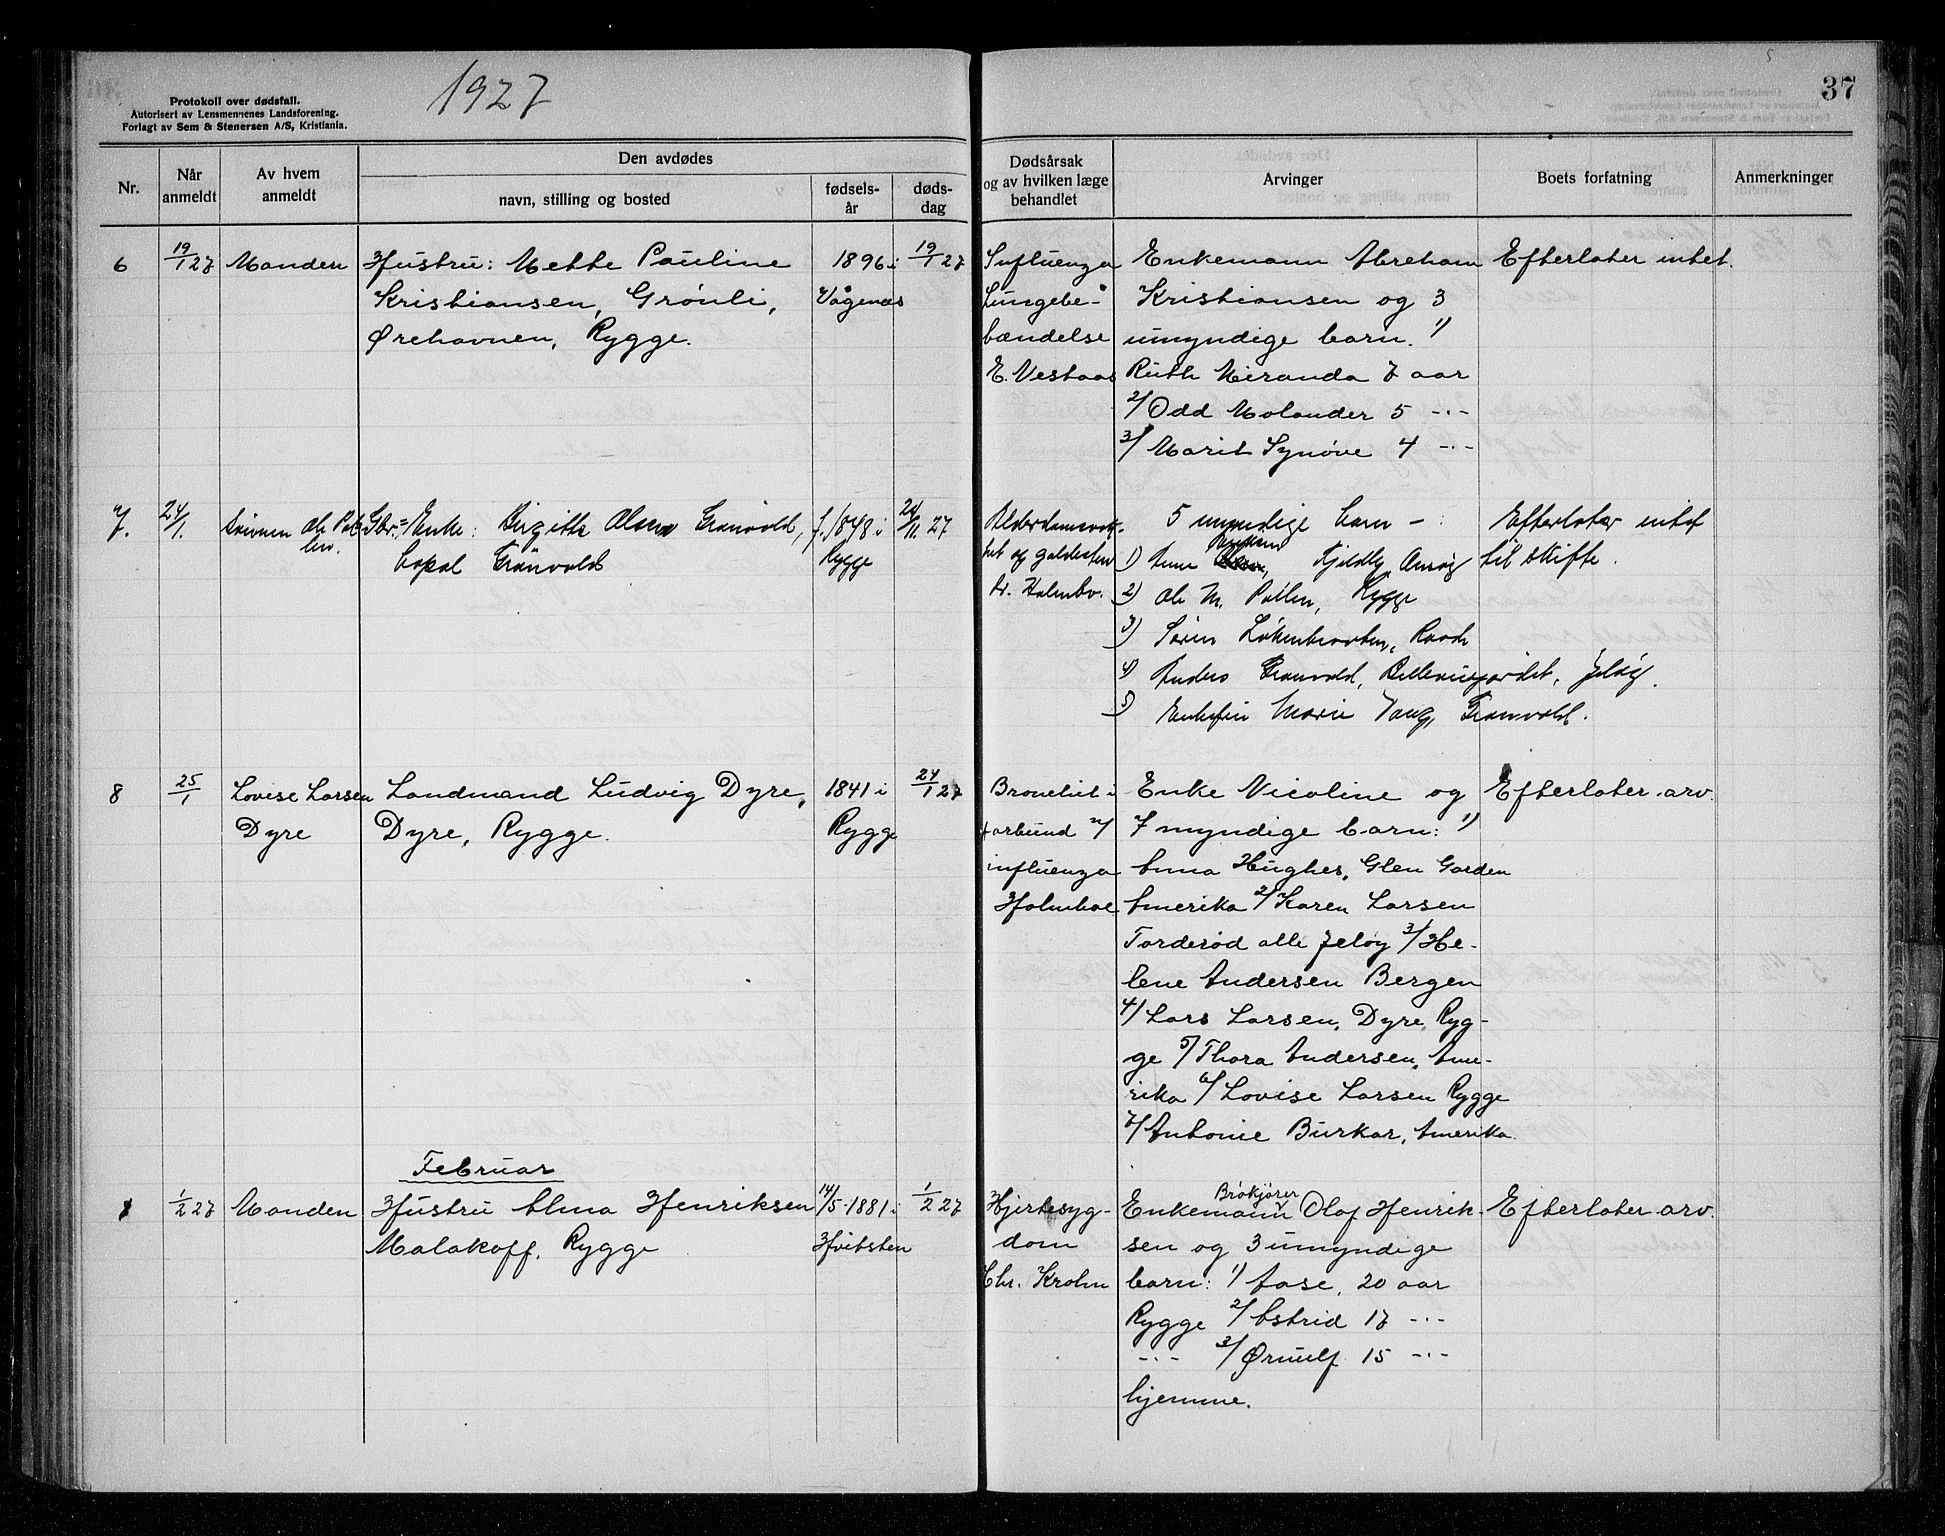 1927
37
Protokoll over dødsfall.
Autorisert av Lensmennenes Landsforening.
Forlagt av Sem & Stenersen A/S, Kristiania.
Nr.
Når anmeldt
Av hvem anmeldt
Den avdødes
navn, stilling og bosted
fødsels-år
døds-dag
Dødsårsak og av hvilken læge behandlet
Arvinger
Boets forfatning
Anmerkninger
6
19/1 27
Manden
Hustru: Mette Pauline
Kristiansen, Grönli,
Ørehavnen, Rygge.
1896 i
Vågenes
19/1 27
Influenza
Lungebe-
bændelse
E. Vestaas
Enkemann Abreham
Kristiansen og 3
umyndige barn. 1/
Ruth Miranda 7 aar
2/ Odd Molander 5 -"-
3/ Marit Synöve 4 -"-
Efterlater intet.
7.
24/1.
Enke: Birgitte Olsen Grönvold,
Grönvold
f. 1848 i
Rygge
27
og galdesten
dr. Holmbo.
5 myndige barn - :
1)
2) Ole M. Pallen, Rygge
3) Sören Raade
4) Anders Grönvold, Jelöy.
5) Enkefru Marie Vang, Grönvold.
Efterlater intet
til skifte.
8
25/1
Lovise Larsen
Dyre
Landmand Ludvig Dyre,
Dyre, Rygge.
1841 i
Rygge
24/1 27
Bronchit i
forbund m/
influenza
Holmboe
Enke Nicoline og
7 myndige barn: 1/
Anna Hughes, Glen Garden
Amerika 2/ Karen Larsen
Torderød alle Jeløy 3/ He-
lene Andersen Bergen
4/ Lars Larsen, Dyre, Ryg-
ge 5/ Thora Andersen, Ame-
rika 6/ Lovise Larsen Rygge
7/ Antonie Burkar, Amerika.
Efterlater arv.
Februar
1
1/2 27
Manden
Hustru Alma Henriksen
Malakoff, Rygge
14/5-1881 i
Hvitsten
1/2 27
Hjertesyg-
dom
Chr. Krohn
Brökjörer
Enkemann Olaf Henrik-
sen og 3 umyndige
barn: 1/ Aase, 20 aar
Rygge 2/ Astrid 17 -"-
-"- 3/ Ørnulf 15 -"-
hjemme.
Efterlater arv.